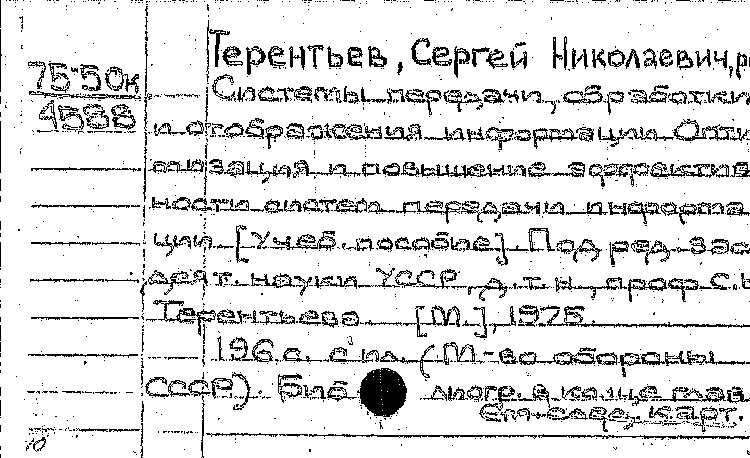 Терентьев, Сергей Николаевич, ре
75-50к
4588
Системы передачи, обработки
и отображения информации. Опти
мизация и повышение эффектив
ности систем передачи информа
ции [Учеб. пособие]. Под ред. зас
деят. науки УССР, д.т.н., проф. С.Н
Терентьева. [М.], 1975.
196 с. с ил. (М-во обороны
СССР). Библиогр. в конце глав
См. след. карт.